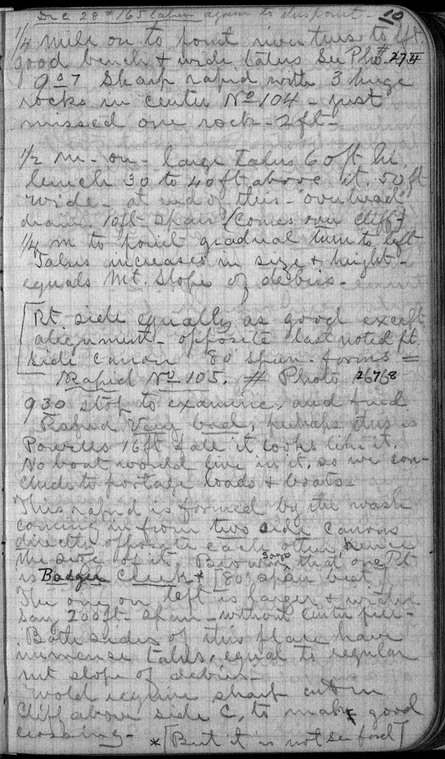 Dec 28th 165 taken again to this point - 10
1/4 mile on to point river turns to lft
good bench & wide talus See Pho # 274
9 07 Sharp rapid with 3 huge
rocks in center No 104 - just
missed one rock - 2 ft -
1/2 m - on - large talus 60 ft hi,
bench 30 to 40 ft above it, 50 ft
wide - at end of this - overhead
drain 10 ft span (comes over cliff)
1/4 m to point gradual turn to left
Talus increases in size & hight -
equals Mt. Slope of debris -
[Rt. side equally as good except
alignment - opposite last noted pt.
side canon 80 span - forms =
Rapid No 105, # Photo 267 & 8
9 30 stop to examine, and find
Rapid Very bad, perhaps this is
Powells 16 ft fall it looks like it,
No boat would live in it, so we con-
clude to portage loads & boats -
This rapid is formed by the wash
coming in from two side canons
directly opposite each other, hence
the size of it, Brown says that one Rt
is Badger Creek * [80 span best]
The one on left is larger & wider
say 200 ft - span - without center pier -
Both sides of this place have
immense talus, equal to regular
mt slope of debris -
Wold require sharp cut in
Cliff above side C, to make good
crossing - * [But it is not soford]